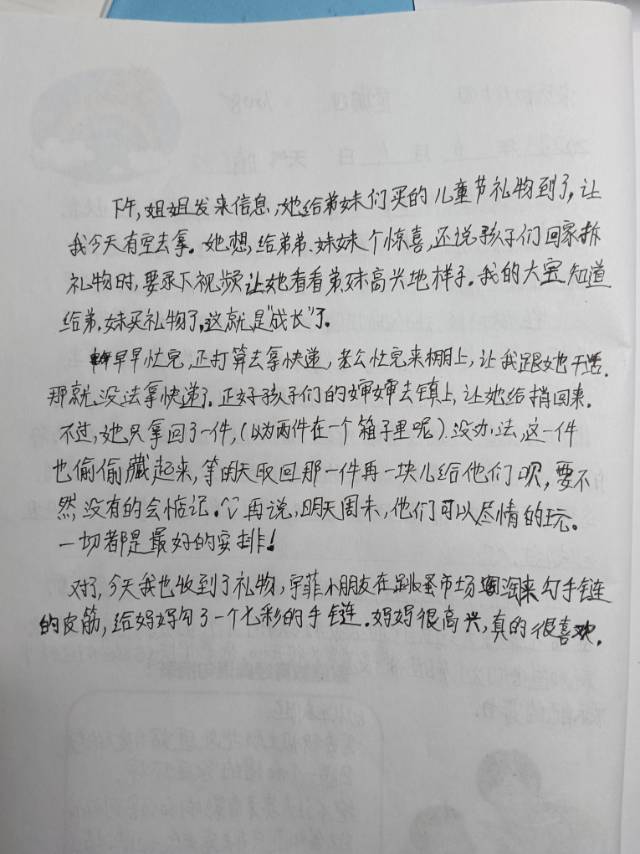 下午,姐姐发来信息,她给弟妹们买的儿童节礼物到了,让
我今天有空去拿。她想给弟弟、妹妹个惊喜,还说孩子们回家拆
礼物时,要录下视频让她看看弟妹高兴地样子。我的大宝知道
给弟、妹买礼物了,这就是“成长”了。
早早忙完,正打算去拿快递,老公忙完来棚上,让我跟她干活。
那就没法拿快递了。正好孩子们的婶婶去镇上,让她给捎回来。
不过,她只拿回了一件,(以为两件在一个箱子里呢)没办法,这一件
也偷偷藏起来,等明天取回那一件再一块儿给他们呗,要不
然没有的会惦记。再说,明天周末,他们可以尽情的玩。
一切都是最好的安排!
对了,今天我也收到了礼物,宇菲小朋友在跳蚤市场淘来勾手链
的皮筋,给妈妈勾了一个七彩的手链。妈妈很高兴,真的很喜欢。